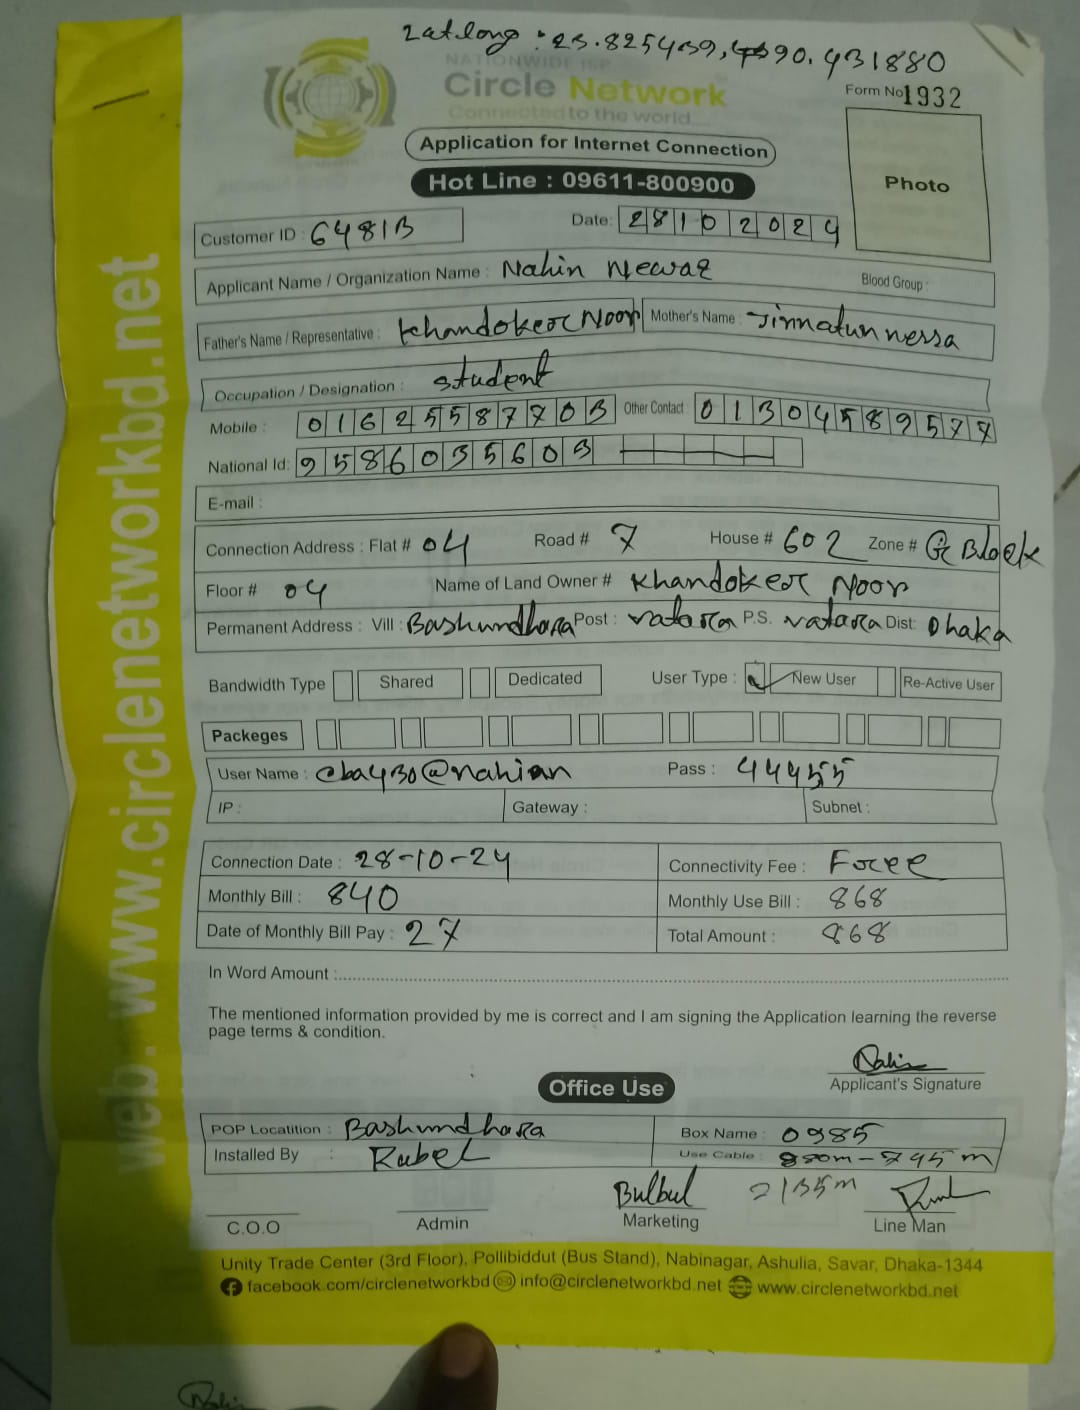 Latlong : 23.825439, 90.431880
NATIONWIDE ISP
Circle Network
Connected to the world
Form No 1932
Application for Internet Connection
Hot Line : 09611-800900
Photo
Customer ID : 6481B
Date: 28102024
Applicant Name / Organization Name : Nahin Newaz Blood Group :
Father's Name / Representative : Khandokeor Noor Mother's Name : Jinnatun nessa
Occupation / Designation : student
Mobile : 01625587703 Other Contact 01304589577
National Id: 9586035603
E-mail :
Connection Address : Flat # 04 Road # 7 House # 602 Zone # G Block
Floor # 04 Name of Land Owner # Khandokeor Noor
Permanent Address : Vill : Bashundhara Post : vatara P.S. vatara Dist: Dhaka
Bandwidth Type Shared Dedicated User Type : New User Re-Active User
Packeges
User Name : cbay30@nahian Pass : 44455
IP : Gateway : Subnet :
Connection Date : 28-10-24 Connectivity Fee : Free
Monthly Bill : 840 Monthly Use Bill : 868
Date of Monthly Bill Pay : 27 Total Amount : 868
In Word Amount :
The mentioned information provided by me is correct and I am signing the Application learning the reverse
page terms & condition.
Nahin
Applicant's Signature
Office Use
POP Locatition : Bashundhara Box Name : 0985
Installed By : Rubel Use Cable : 795 m
Bulbul 2135m
C.O.O Admin Marketing Line Man
Unity Trade Center (3rd Floor), Pollibiddut (Bus Stand), Nabinagar, Ashulia, Savar, Dhaka-1344
facebook.com/circlenetworkbd info@circlenetworkbd.net www.circlenetworkbd.net
web. www.circlenetworkbd.net